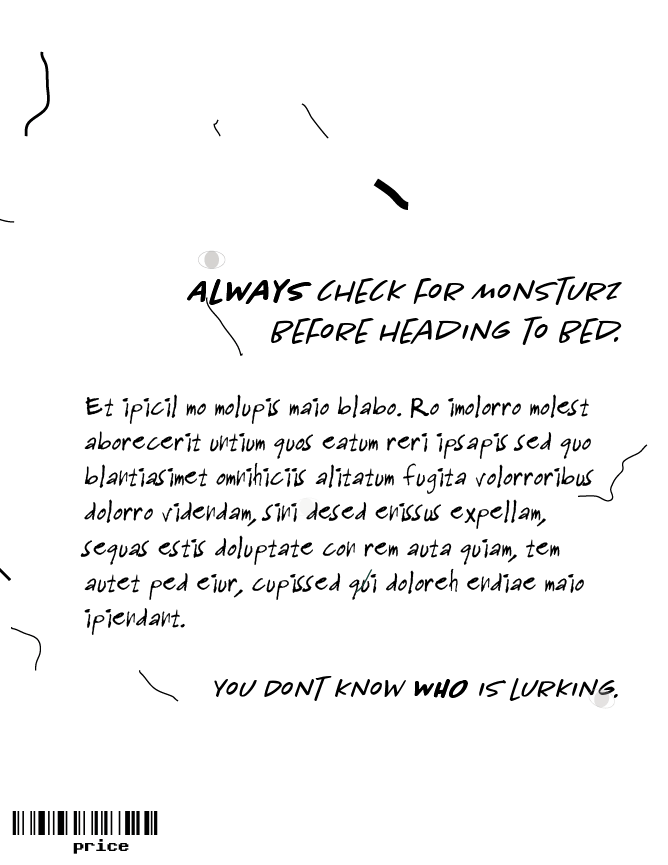 ALWAYS CHECK FOR MONSTURZ
BEFORE HEADING TO BED.
Et ipicil mo molupis maio blabo. Ro imolorro molest
aborecerit untium quos eatum reri ipsapis sed quo
blantiasimet omnihiciis alitatum fugita volorroribus
dolorro videndam, sini desed enissus expellam,
sequas estis doluptate con rem auta quiam, tem
autet ped eiur, cupissed qui doloreh endiae maio
ipiendant.
YOU DONT KNOW WHO IS LURKING.
price